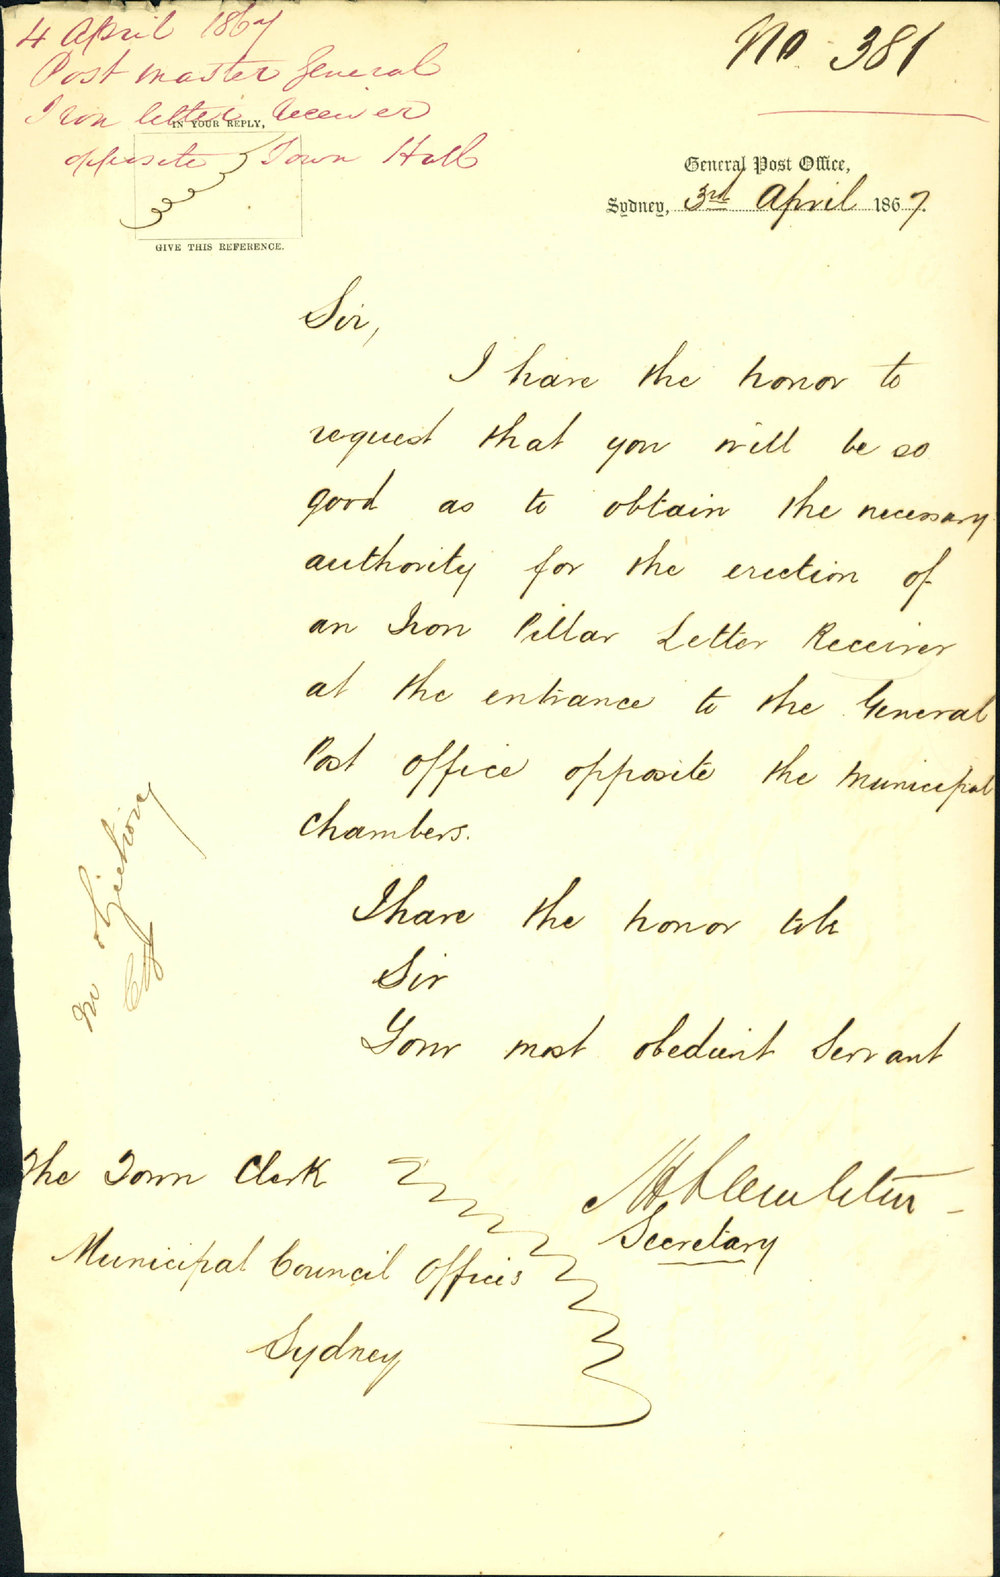 4 April 1867
Post master General
Iron letter receiver
opposite Town Hall
IN YOUR REPLY,
GIVE THIS REFERENCE.
No. 381
General Post Office,
Sydney, 3rd April 1867.
Sir,
I have the honor to
request that you will be so
good as to obtain the necessary
authority for the erection of
an Iron Pillar Letter Receiver
at the entrance to the General
Post office opposite the Municipal
Chambers.
I have the honor to be
Sir
Your most obedient Servant
Secretary
The Town Clerk
Municipal Council Offices
Sydney
No objection